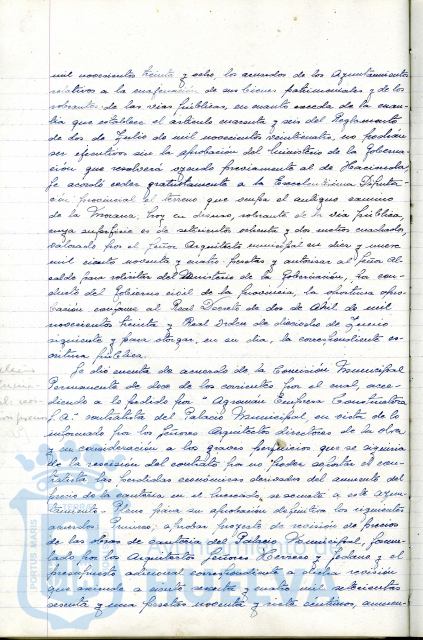 mil novecientos treinta y ocho, los acuerdos de los Ayuntamientos
relativos a la enajenación de sus bienes patrimoniales y de los
sobrantes de las vías públicas, en cuanto exceda de la cuan-
tía que establece el artículo cuarenta y seis del Reglamento
de dos de Julio de mil novecientos veinticuatro, no podrán
ser ejecutivos sin la aprobación del Ministerio de la Goberna-
ción que resolverá oyendo previamente al de Hacienda,
se acordó ceder gratuitamente a la Excelentísima Diputa-
ción provincial el terreno que ocupa el antiguo camino
de la Morana, hoy en desuso, sobrante de la vía pública,
cuya superficie es de setecientos ochenta y dos metros cuadrados,
valorado por el Señor Arquitecto municipal en diez y nueve
mil ciento noventa y cuatro pesetas y autorizar al Señor Al-
calde para solicitar del Ministerio de la Gobernación, por con-
ducto del Gobierno civil de la provincia, la oportuna apro-
bación conforme al Real Decreto de dos de Abril de mil
novecientos treinta y Real Orden de dieciocho de
siguiente y para otorgar, en su día, la correspondiente es-
critura pública.
Se dió cuenta de acuerdo de la Comisión Municipal
Permanente de doce de los corrientes por el cual, acce-
diendo a lo pedido por "Agromán Empresa Constructora
S.A." contratista del Palacio Municipal, en vista de lo
informado por los Señores Arquitectos directores de la obra
y en consideración a los graves perjuicios que se seguiría
de la rescisión del contrato por no poder soportar el con-
tratista las pérdidas económicas derivadas del aumento del
precio de la cantería en el mercado, se somete a este Ayun-
tamiento - Pleno para su aprobación definitiva los siguientes
acuerdos: Primero: aprobar proyecto de revisión de precios
de las obras de cantería del Palacio Municipal, formu-
lado por los Arquitectos Señores Herrero y Sedano y el
presupuesto adicional correspondiente a dicha revisión
que asciende a ciento sesenta y cuatro mil setecientas
sesenta y una pesetas noventa y siete céntimos, aumen-
PORTUS MARIS